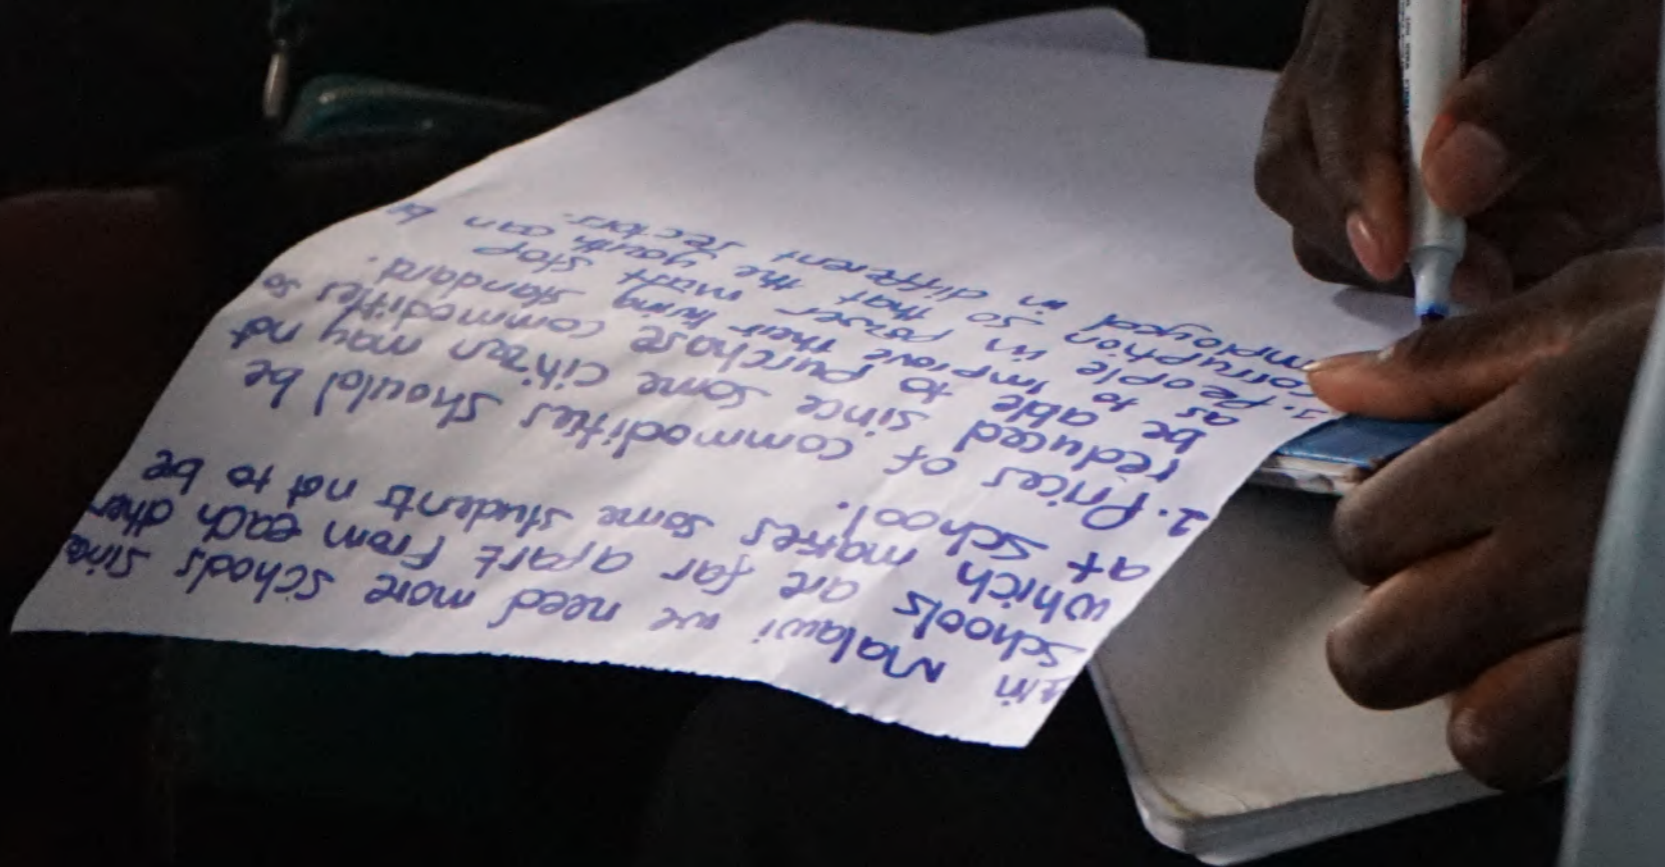 in Malawi we need more schools since
schools are far apart from each other
which makes some students not to be
at school.
2. Prices of commodities should be
reduced since some citizen may not
be able to purchase commodities so
as to improve their living standard.
3. People in power must stop
corruption so that the youth can be
employed in different sectors.